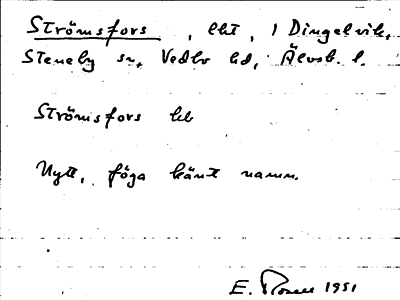 Strömsfors, lht, i Dingelvik,
Steneby sn, Vedbo hd, Älvsb. l.
Strömsfors
Nytt, föga känt namn.
E. Rosen 1951